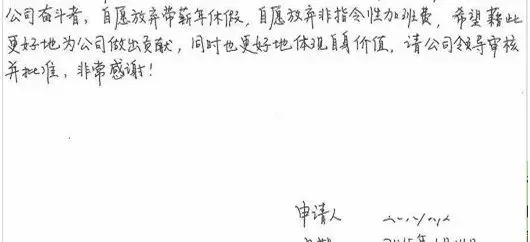 公司奋斗者，自愿放弃带薪年休假，自愿放弃非指令性加班费，希望藉此
更好地为公司做出贡献，同时也更好地体现自身价值，请公司领导审核
并批准，非常感谢！
申请人